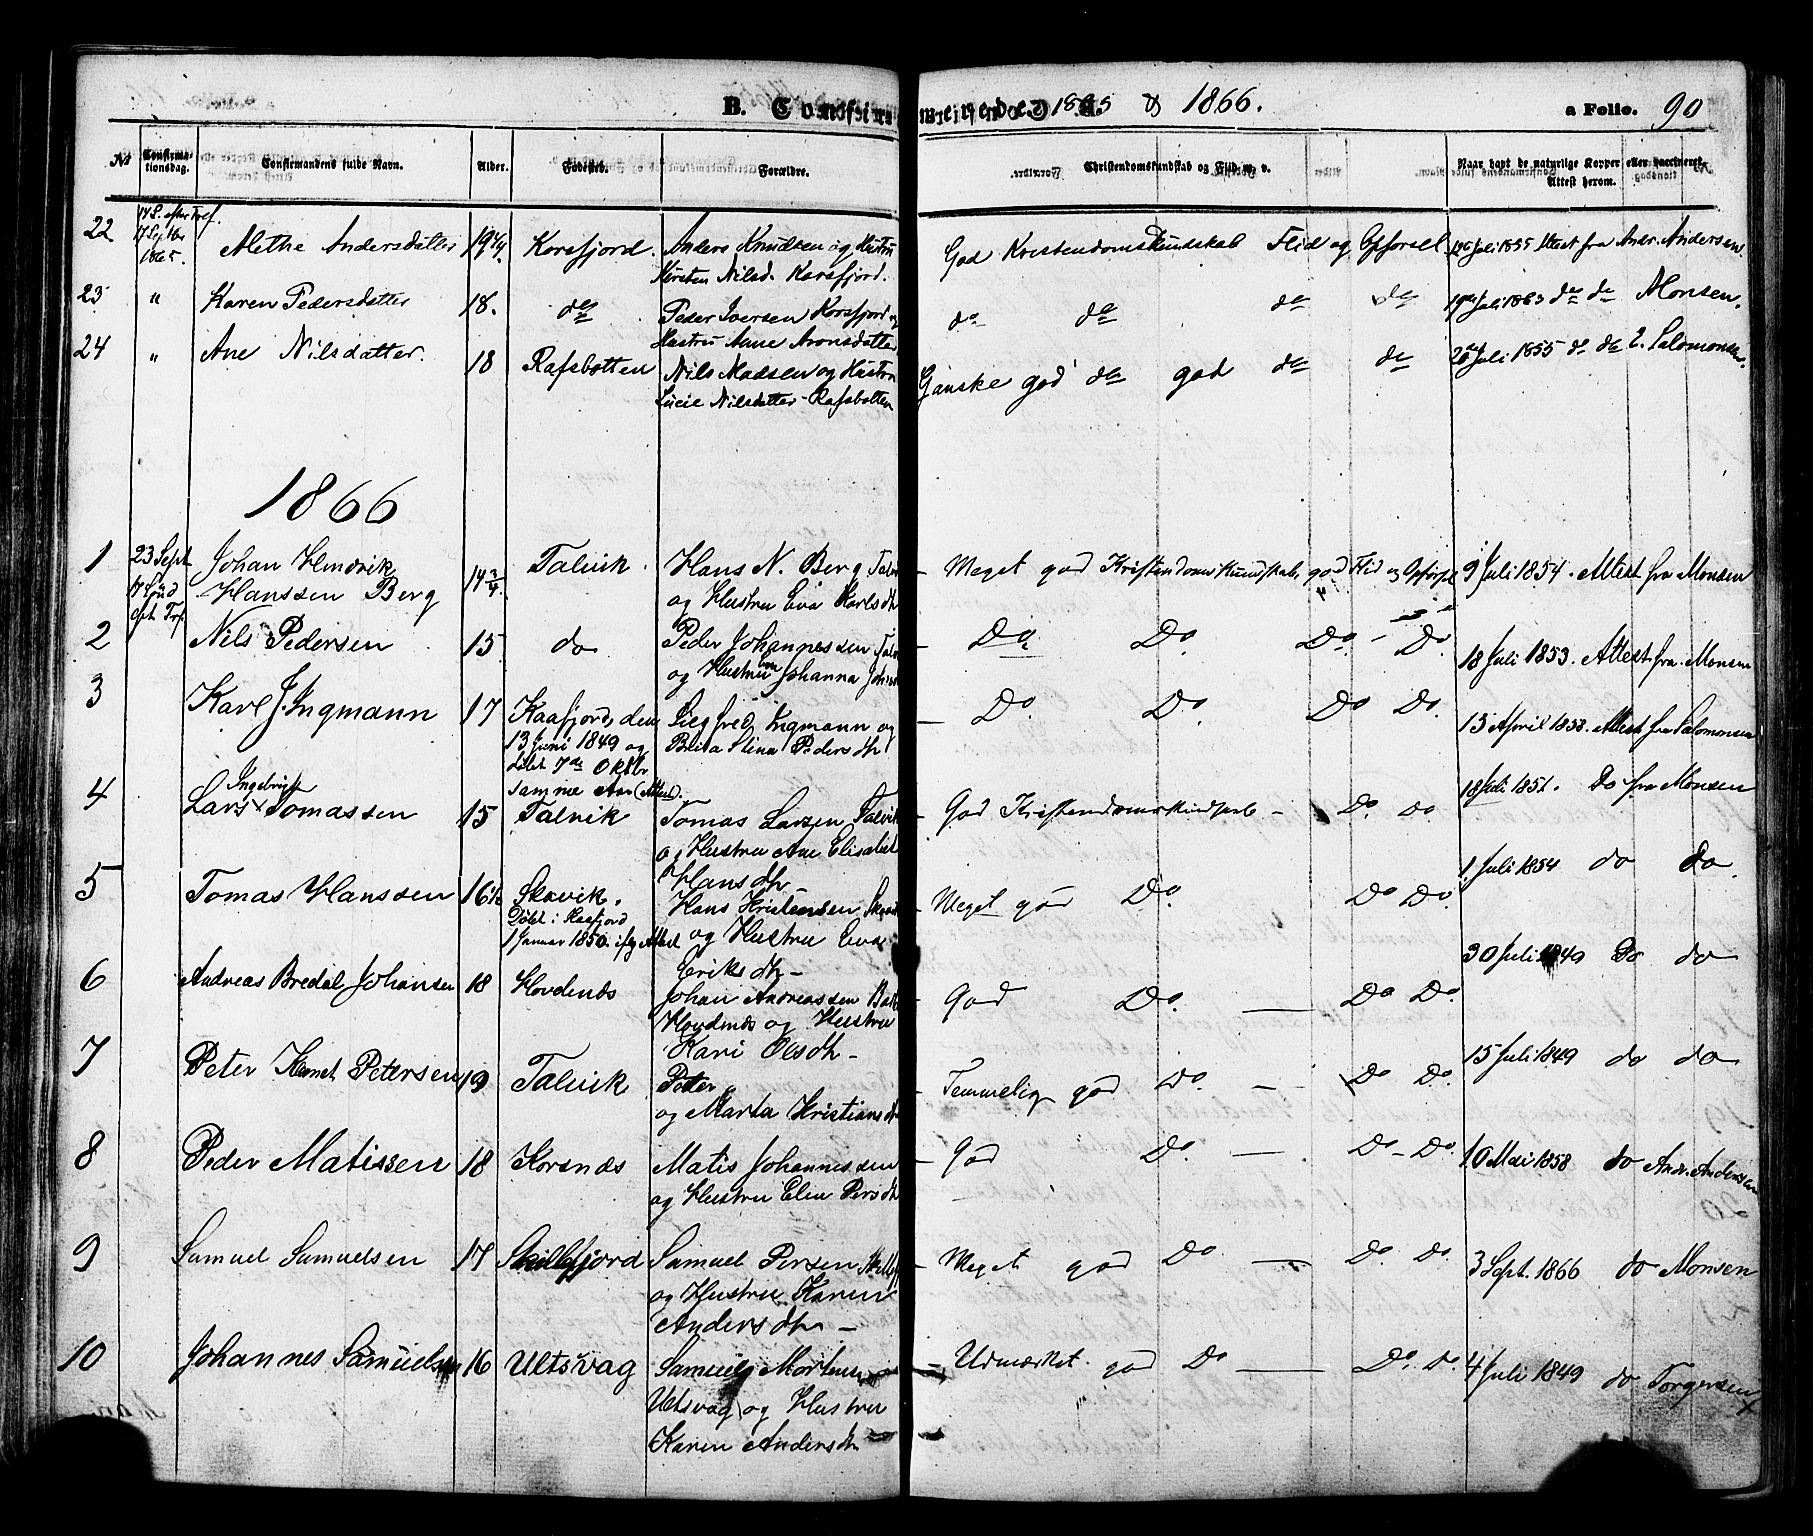 B. Confirmerende 1865 & 1866. a Folio. 90
No Confirmationsdag. Confirmandens fulde Navn. Alder. Fødested. Forældre. Christendomskundskab og Flid m. v. Naar havt de naturlige Kopper eller vaccineret. Attest herom.
22 14 S. efter Tref. 17 1865. Methe Andersdatter 19 1/4 Korsfjord. Anders Knudsen og Hustru God Kristendomskundskab Flid og Opførsel Juli 1855 Attest fra Andr. Andersen.
Kirsten Nilsd. Korsfjord.
23 " Karen Pedersdatter 18. do Peder Iversen Korsfjord og do do do do 19de Juli 1863 do do Monsen.
Hustru Anne Aronsdatter
24 " Ane Nilsdatter. 18 Rafsbotten Nils Madsen og Hustru Ganske god do god do do Juli 1855 do do E. Salomonsen.
Lucie Nilsdatter Rafsbotten
1866
1 23 Sept Johan Hendrik Talvik. Hans N. Berg Meget god Kristendomskundskab, god Flid og Opførsel 9 Juli 1854. Attest fra Monsen
Hanssen Berg 14 3/4 og Hustru Eva Karlsdtr
2 Nils Pedersen 15 do Peder Johannessen Do Do. Do. - Do 18 Juli 1853. Attest fra Monsen
og Hustru Johanna
3 Karl J. Ingmann 17 Kaafjord, den Siegfred Ingmann og Do. Do. Do Do. 13 April 1853. Attest fra Salomonsen
13 Juni 1849 og Brita Stina Pedersdtr
døbt 7de Oktbr
samme Aar (Attest).
4 Lars Ingebrigt Tomassen 15 Talvik Tomas Larsen Talvik God Kristendomskundskab - Do. do. 18 Juli 1851. Do fra Monsen
og Hustru Ane Elisabet
Hansdtr
5 Tomas Hanssen 16 1/2 Skavik. Hans Kristensen Meget god Do. Do Do. 1 Juli 1854 do do.
Døbt i Kaafjord og Hustru Eva
1 Januar 1850. ifg Attest
Eriksdtr -
6 Andreas Bredal Johansen 18 Hovdenæs Johan Andreassen God Do. Do Do. 30 Juli 1849 Do do
Hovdenæs og Hustru
Kari Olsdtr -
7 Peter Petersen 19 Talvik Peter Temmelig god Do. Do Do. 15 Juli 1849 do do
og Marta Kristiansdtr
8 Peder Matissen 18 Korsnæs Matis Johannessen God Do. Do - Do. 10 Mai 1858 do Andr. Andersen
og Hustru Elen Persdtr
9 Samuel Samuelsen 17 Skillefjord Samuel Persen Meget god Do Do. Do. 3 Sept. 1866 do Monsen
og Hustru Karen
Andersdtr -
10 Johannes Samuelsen 16 Ultsvag Samuel Mortensen Udmærket god Do Do. Do. 4 Juli 1849 do Torgersen
Ultsvag og Hustru
Karen Andersdtr